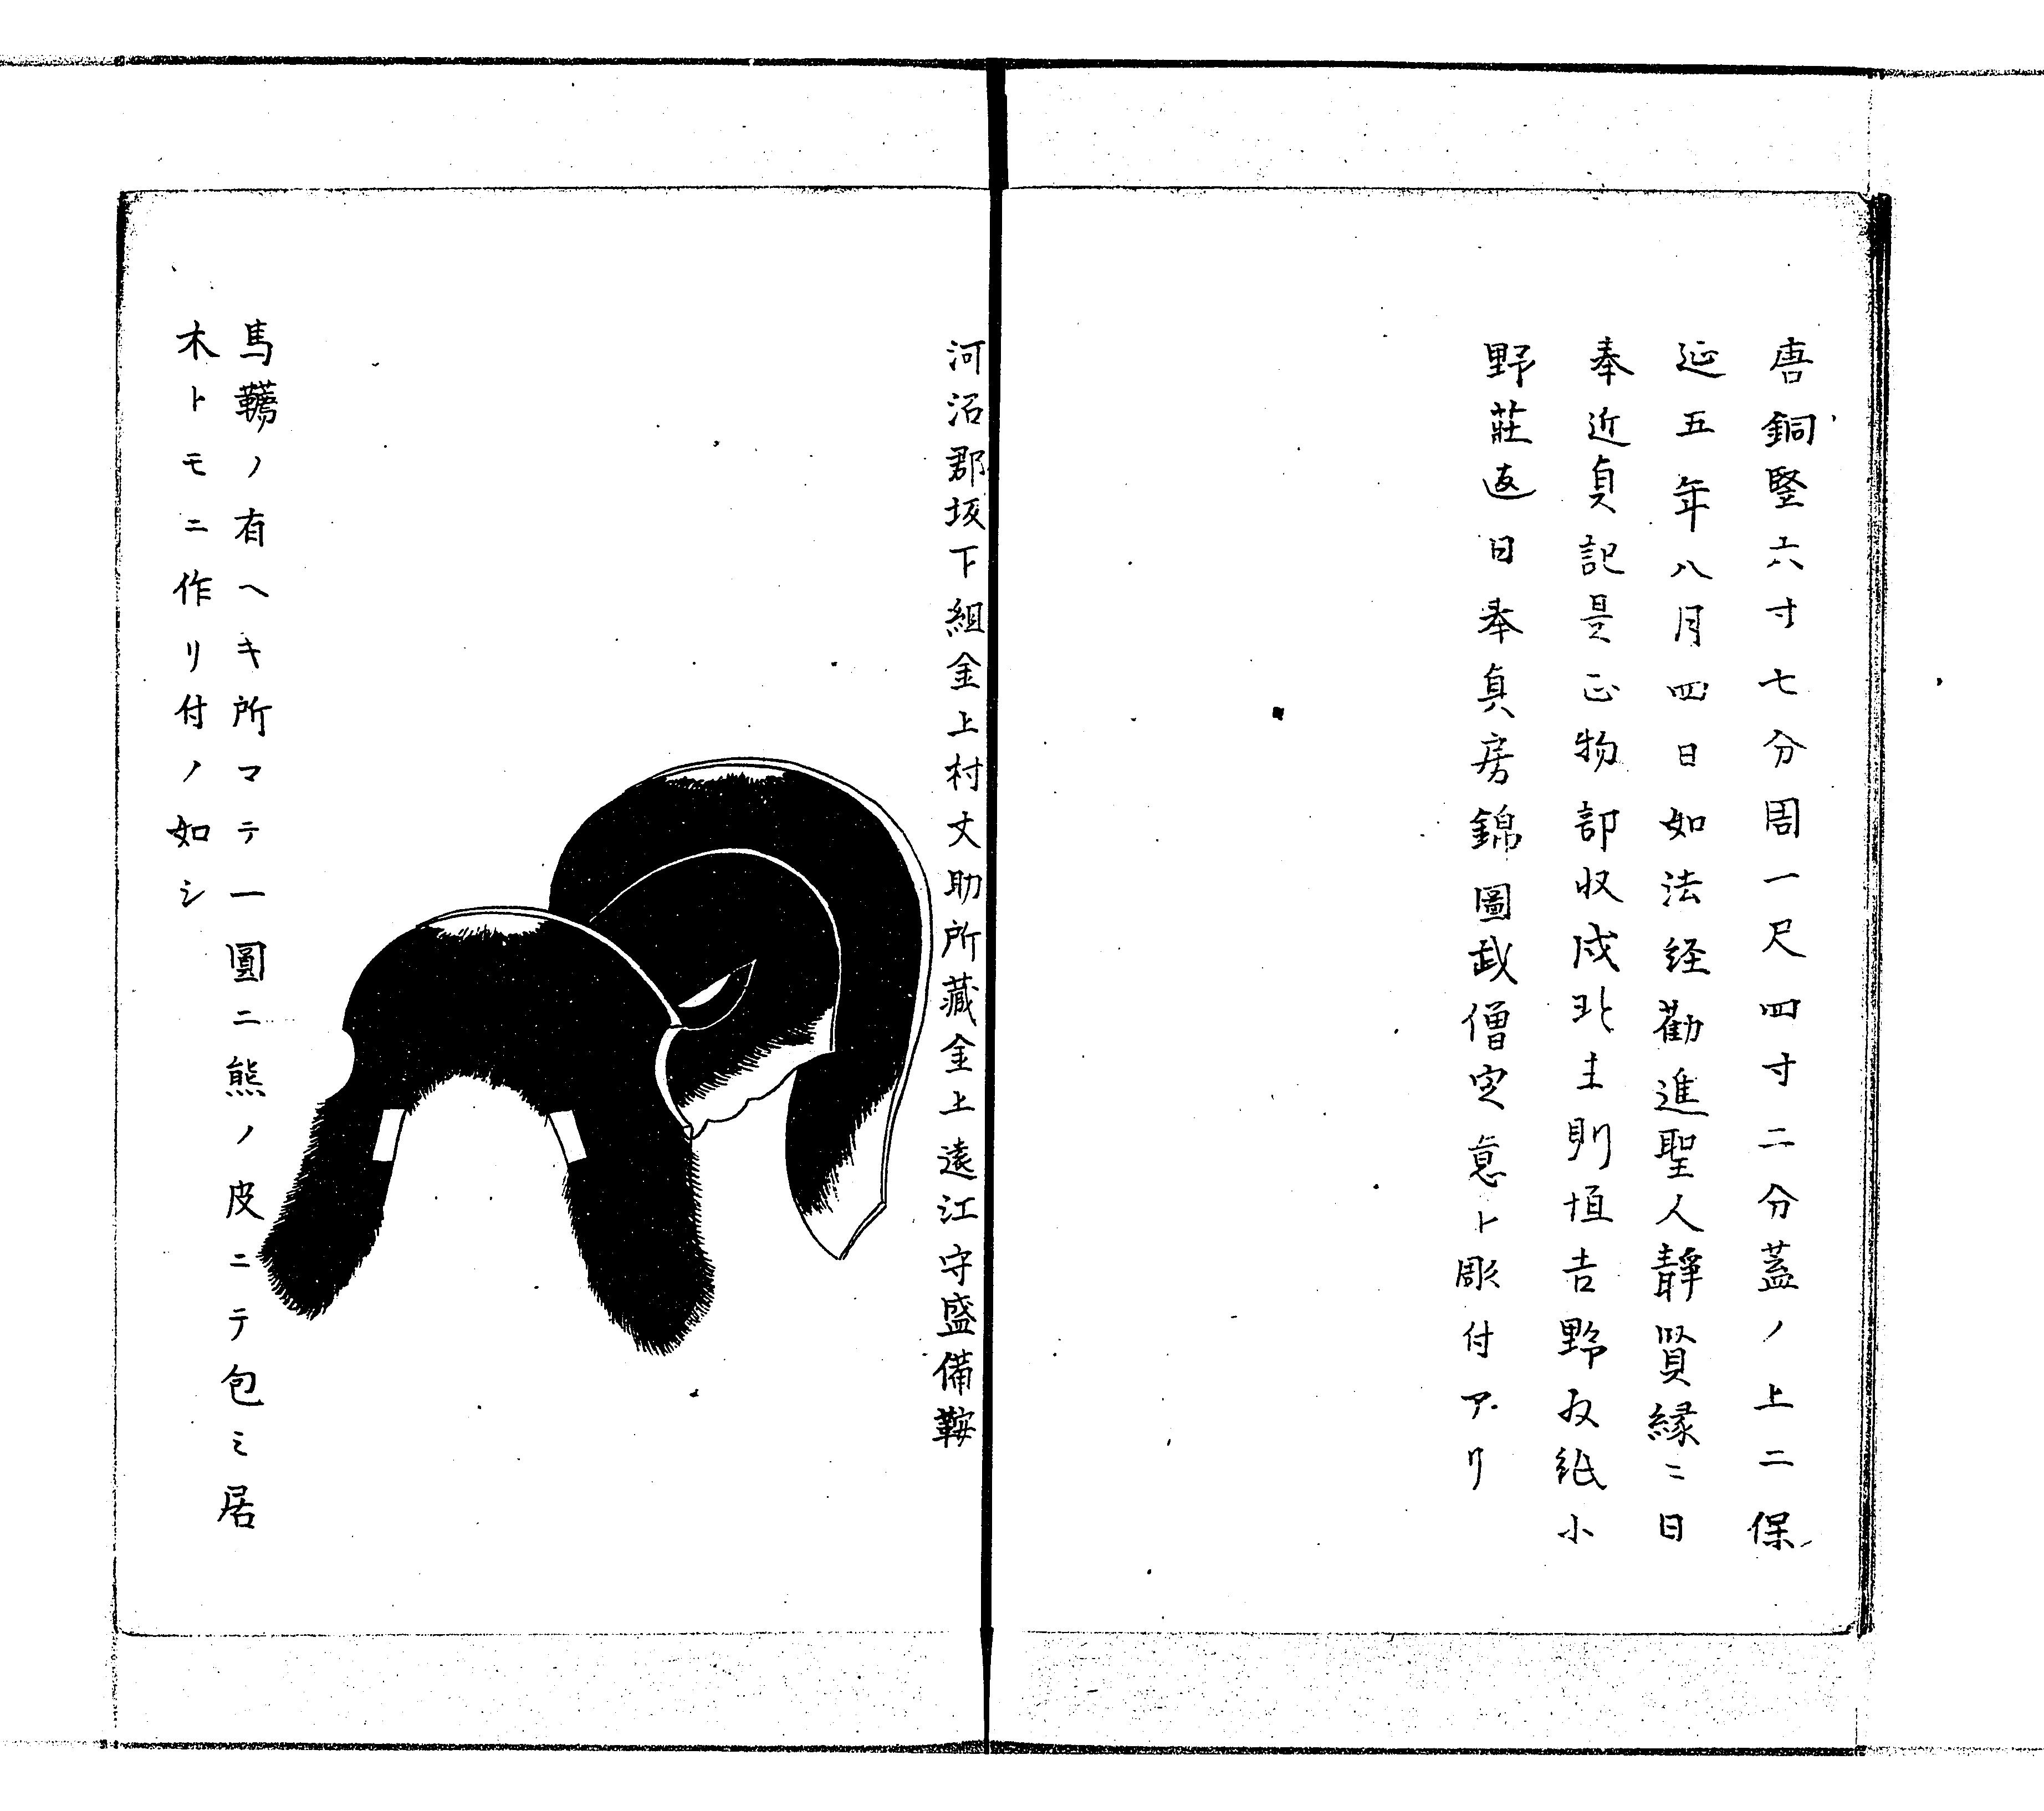 唐銅竪六寸七分周一尺四寸二分蓋ノ上二保
延五年八月四日如法経勸進聖人靜賢縁ニ日
奉近貞記是正物部収成北圭則恒吉野友紙小
野莊返日奉貞房錦圖武僧定意ト彫付アリ
河沼郡坂下組金上村丈助所藏金上遠江守盛備鞍
馬韉ノ有ヘキ所マテ一圓ニ熊ノ皮ニテ包ミ居
木トモニ作リ付ノ如シ